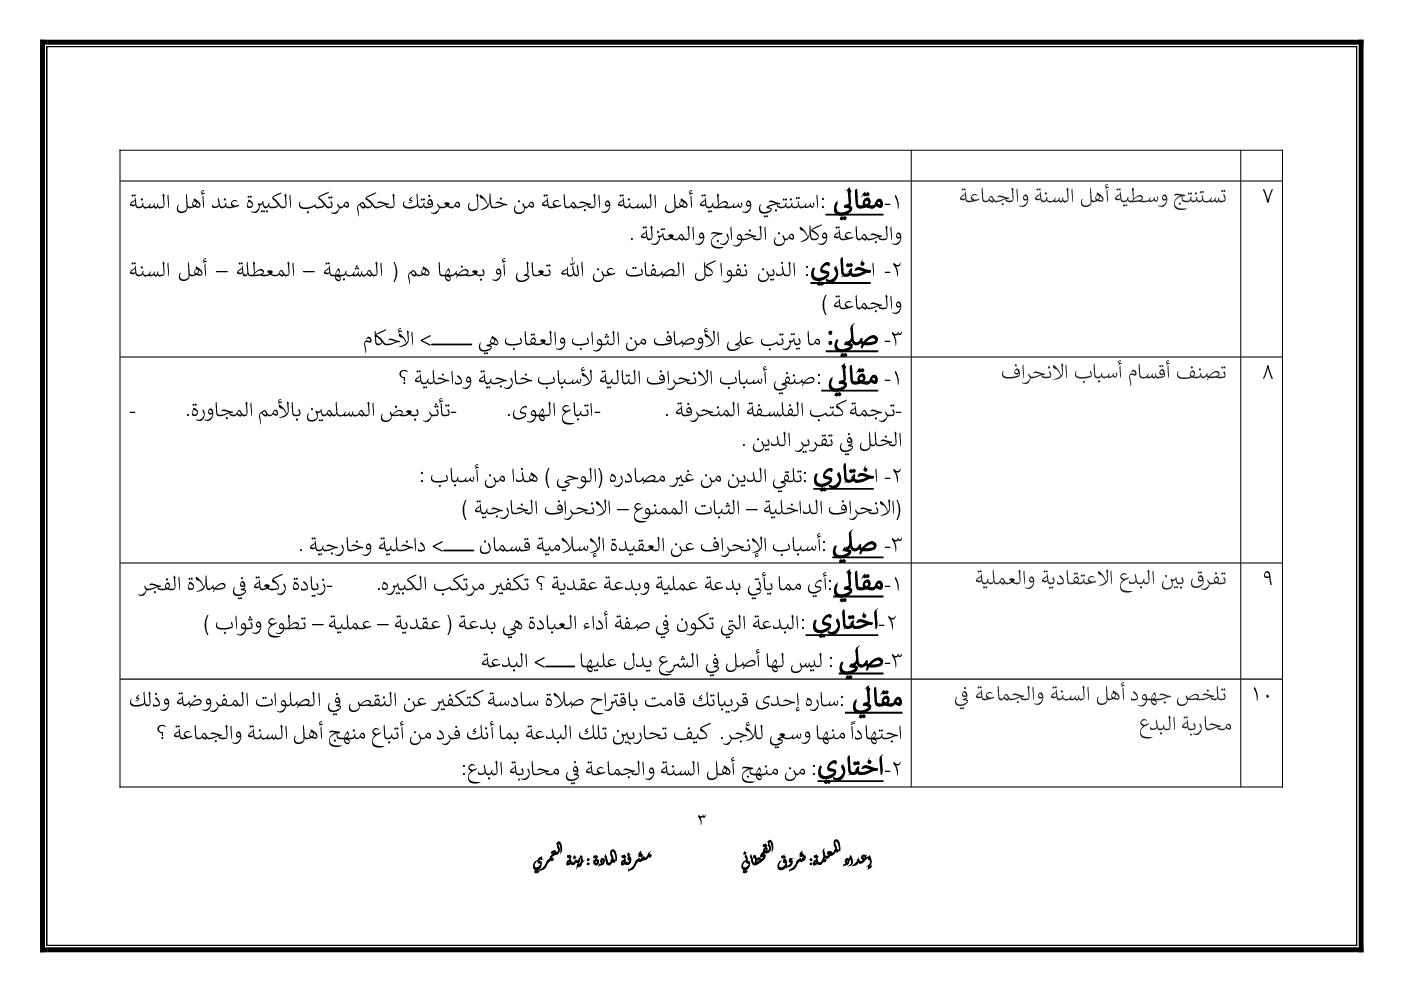 ٧
تستنتج وسطية أهل السنة والجماعة
١-مقالي :استنتجي وسطية أهل السنة والجماعة من خلال معرفتك لحكم مرتكب الكبيرة عند أهل السنة
والجماعة وكلا من الخوارج والمعتزلة .
٢- اختاري: الذين نفوا كل الصفات عن الله تعالى أو بعضها هم ( المشبهة – المعطلة – أهل السنة
والجماعة )
٣- صلي: ما يترتب على الأوصاف من الثواب والعقاب هي ـــــــ> الأحكام
٨
تصنف أقسام أسباب الانحراف
١- مقالي :صنفي أسباب الانحراف التالية لأسباب خارجية وداخلية ؟
-ترجمة كتب الفلسفة المنحرفة . -اتباع الهوى. -تأثر بعض المسلمين بالأمم المجاورة. -
الخلل في تقرير الدين .
٢- اختاري :تلقي الدين من غير مصادره (الوحي ) هذا من أسباب :
(الانحراف الداخلية – الثبات الممنوع – الانحراف الخارجية )
٣- صلي :أسباب الإنحراف عن العقيدة الإسلامية قسمان ـــــ> داخلية وخارجية .
٩
تفرق بين البدع الاعتقادية والعملية
١-مقالي:أي مما يأتي بدعة عملية وبدعة عقدية ؟ تكفير مرتكب الكبيره. -زيادة ركعة في صلاة الفجر
٢-اختاري :البدعة التي تكون في صفة أداء العبادة هي بدعة ( عقدية – عملية – تطوع وثواب )
٣-صلي : ليس لها أصل في الشرع يدل عليها ـــــ> البدعة
١٠
تلخص جهود أهل السنة والجماعة في
محاربة البدع
مقالي :ساره إحدى قريباتك قامت باقتراح صلاة سادسة كتكفير عن النقص في الصلوات المفروضة وذلك
اجتهاداً منها وسعي للأجر. كيف تحاربين تلك البدعة بما أنك فرد من أتباع منهج أهل السنة والجماعة ؟
٢-اختاري: من منهج أهل السنة والجماعة في محاربة البدع:
٣
إعداد المعلمة: شروق القحطاني مشرفة المادة : نبنة العمري